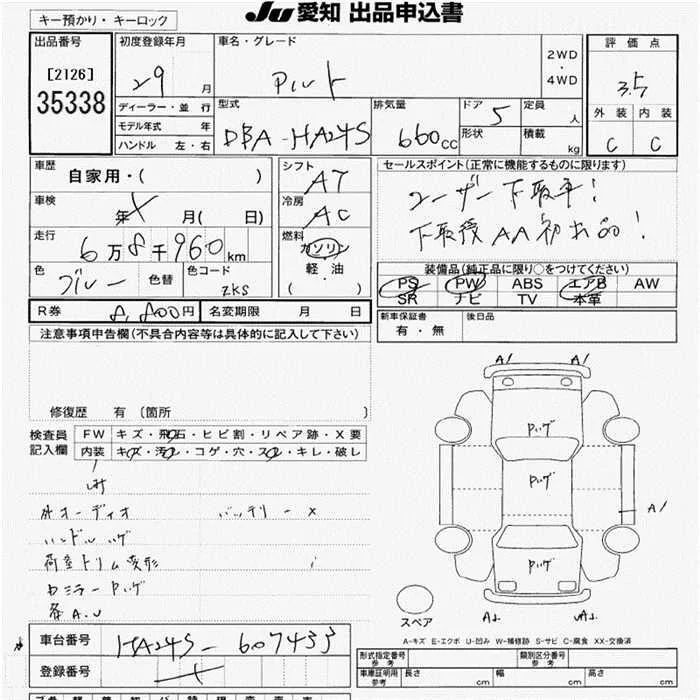 キー預かり・キーロック
JU 愛知 出品申込書
出品番号
[2126]
35338
初度登録年月
29 月
車名・グレード
2WD
・
4WD
評価点
3.5
ディーラー・並 行
モデル年式 年
ハンドル 左・右
型式
DBA-HA24S
排気量
660cc
ドア 5
形状
定員 人
積載 kg
外装 内装
C C
車歴
自家用・( )
車検
年 月( 日)
走行
6万8千960km
色
ブルー
色替
色コード
ZKS
シフト
AT
冷房
AC
燃料
ガソリン
軽・油
( )
セールスポイント(正常に機能するものに限ります)
ユーザー下取車!
下取後AA初出品!
装備品(純正品に限り○をつけてください)
PS PW ABS エアB AW
SR ナビ TV 本革
R券 8,800円
名変期限 月 日
新車保証書
有・無
後日品
注意事項申告欄(不具合内容等は具体的に記入して下さい)
修復歴 有〔箇所 〕
検査員
記入欄
FW キズ・飛石・ヒビ割・リペア跡・X要
内装 キズ・汚れ・コゲ・穴・スレ・キレ・破レ
外オーディオ バッテリーX
ハンドルハゲ
荷室トリム変形
A1 A1
A1
スペア
A-キズ E-エクボ U-凹み W-補修跡 S-サビ C-腐食 XX-交換済
車台番号 HA24S-607433
登録番号
形式指定番号
参考
類別区分番号
参考
車庫証明用
参考
長さ cm 幅 cm 高さ cm